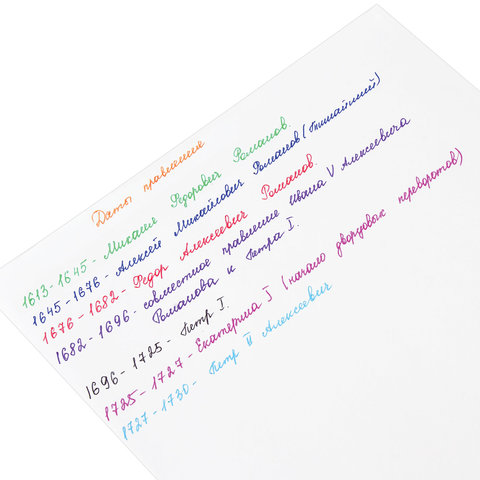 Даты правления
1613-1645- Михаил Федорович Романов.
1645-1676- Алексей Михайлович Романов (тишайший)
1676-1682- Федор Алексеевич Романов.
1682-1696- совместное правление Ивана V Алексеевича
Романова и Петра I.
1696-1725- Петр I.
1725-1727- Екатерина I (начало дворцовых переворотов)
1727-1730- Петр II Алексеевич